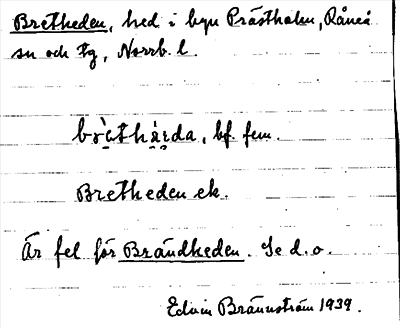 Bretheden, hed i byn Prästholm, Råneå
sn och tg, Norrb. l.
brèthä̀rda, bf. fem.
Bretheden ek.
Är fel för Brändheden. Se d. o.
Edvin Brännström 1939.